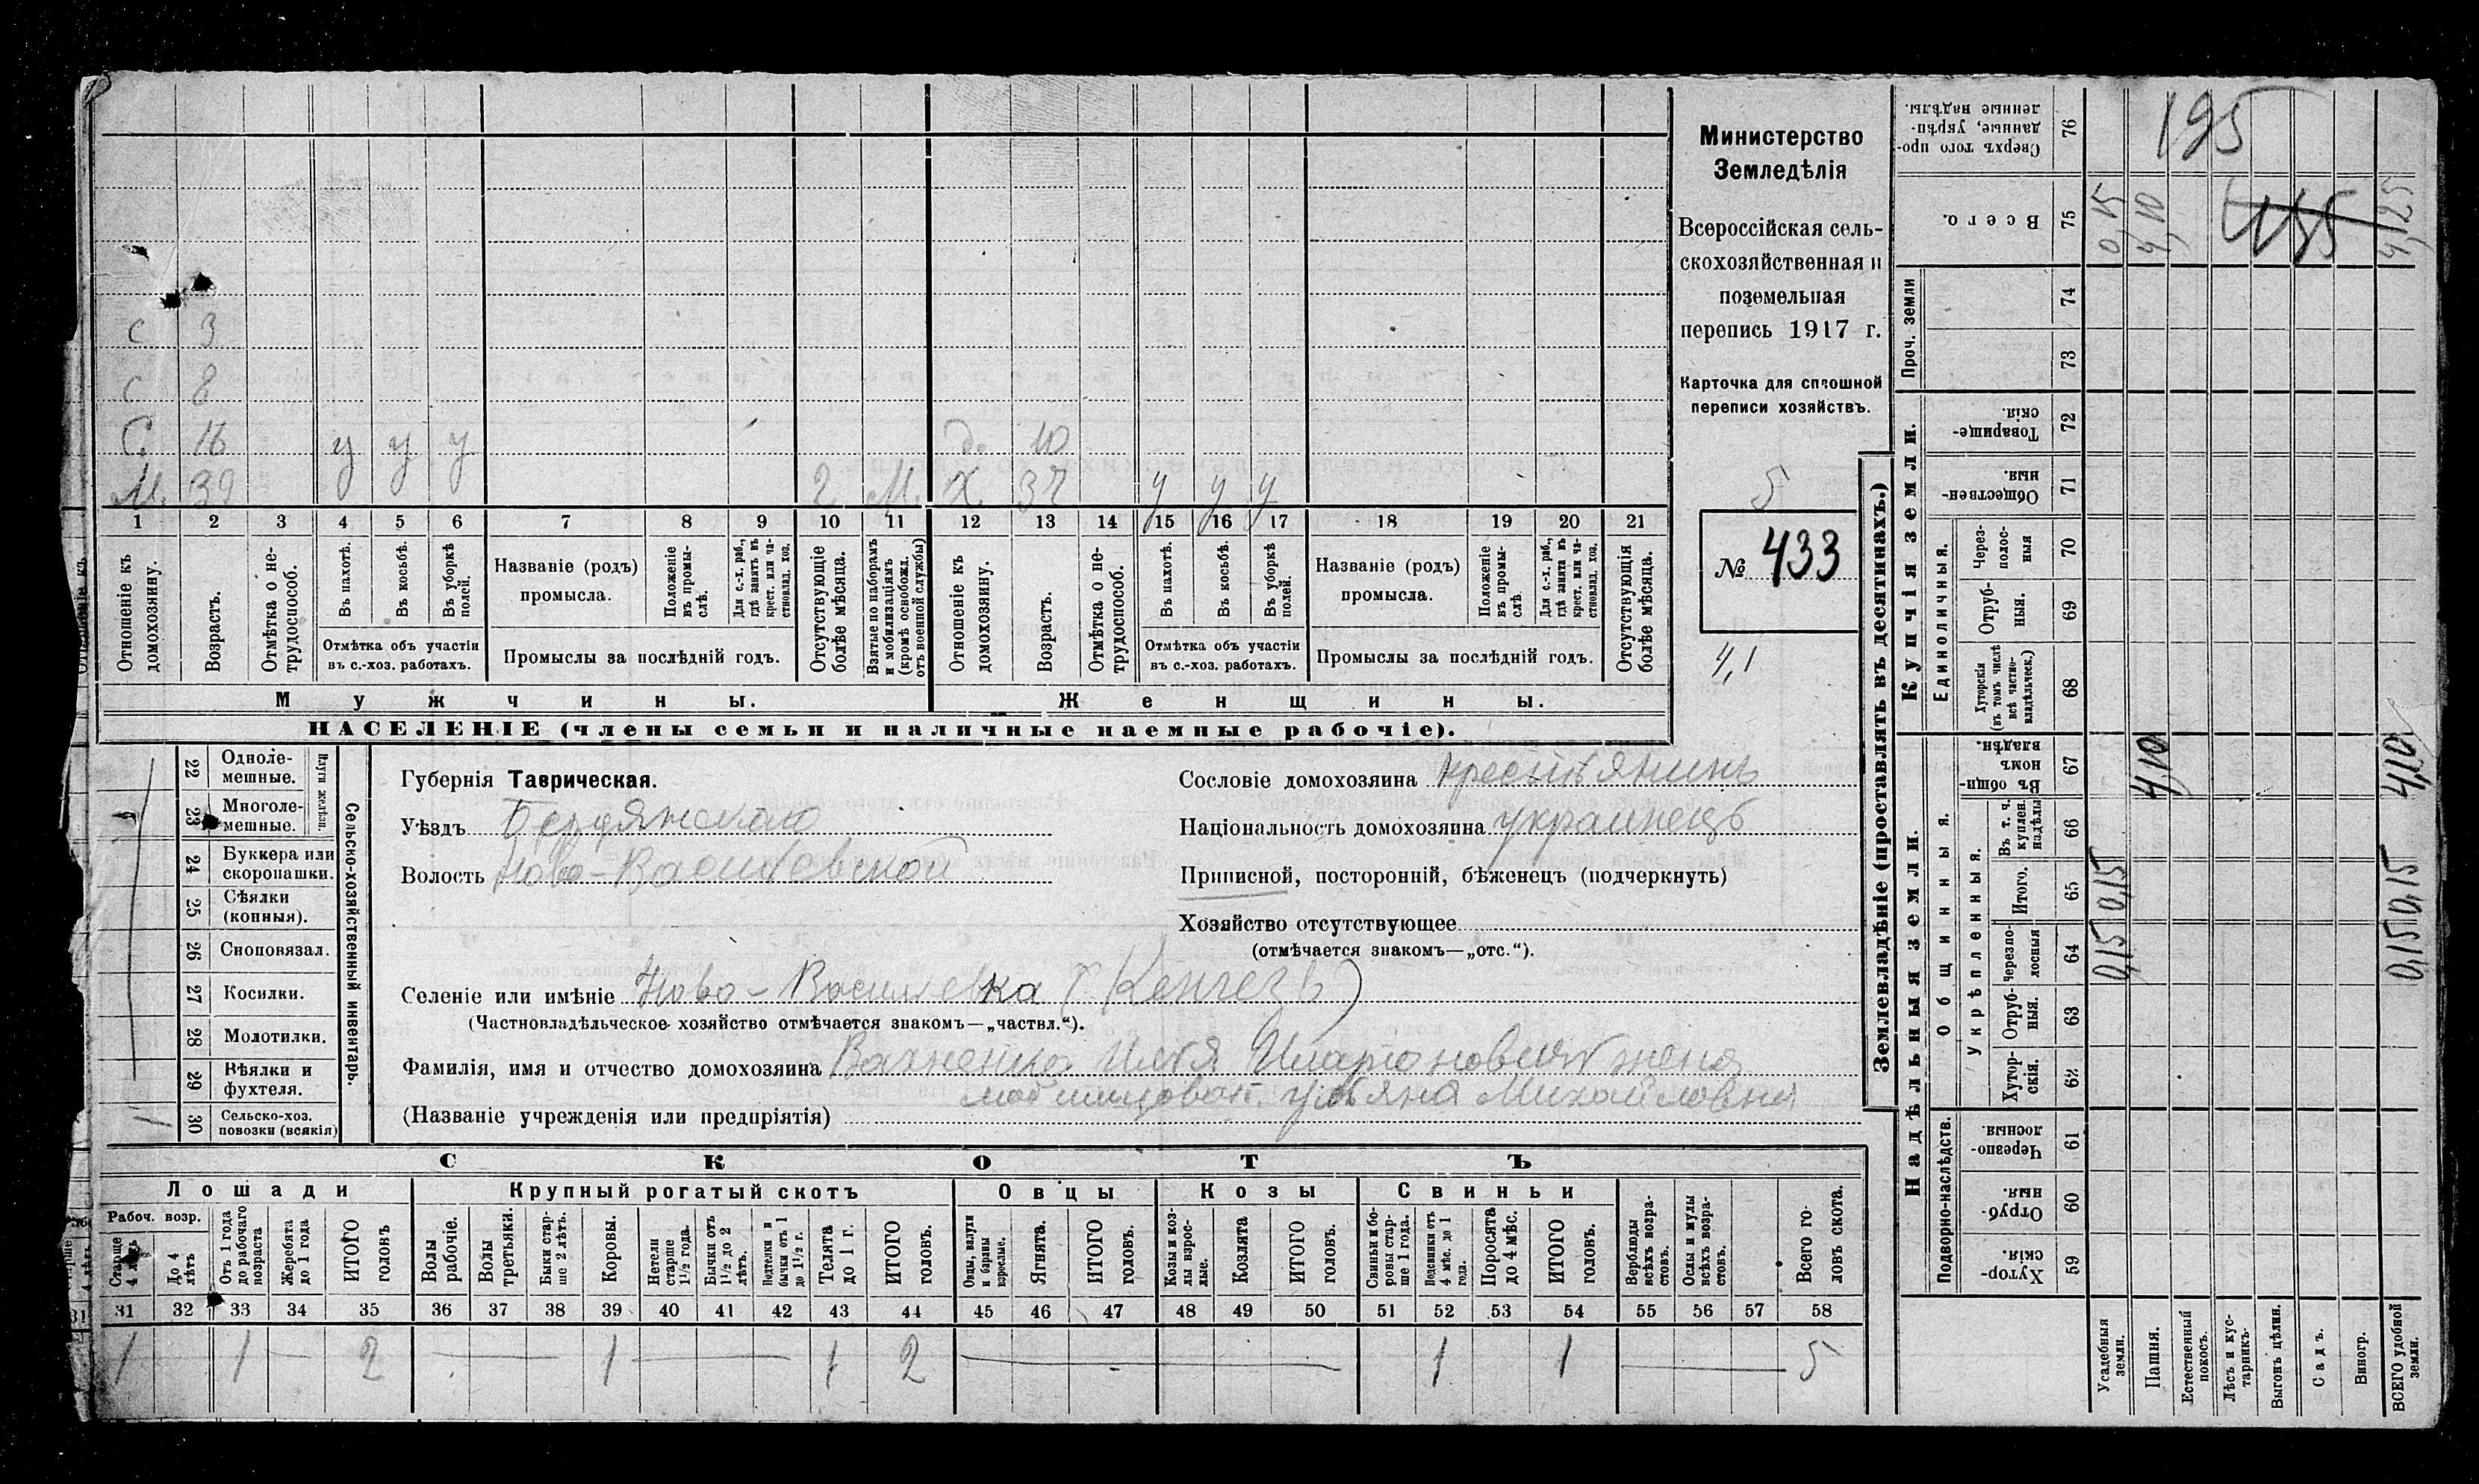 Министерство
Земледѣлія
Всероссійская сель-
скохозяйственная и
поземельная
перепись 1917 г.
Карточка для сплошной
переписи хозяйствъ.
5
№ 433
4,1
С 3
С 8
С. 16 у у у д. 10
М. 39 2 М. Х. 37 у у у
1 2 3 4 5 6 7 8 9 10 11 12 13 14 15 16 17 18 19 20 21
Отношеніе къ домохозяину.
Возрастъ.
Отмѣтка о не-трудоспособ.
Въ пахотѣ.
Въ косьбѣ.
Въ уборкѣ полей.
Отмѣтка объ участіи
въ с.-хоз. работахъ.
Названіе (родъ)
промысла.
Положеніе въ промы-слѣ.
Для с.-х. раб., гдѣ занятъ въ крест. или ча-стновлад. хоз.
Промыслы за послѣдній годъ.
Отсутствующіе болѣе мѣсяца.
Взятые по наборамъ и мобилизаціямъ (кромѣ освобожд. отъ военной службы)
Отношеніе къ домохозяину.
Возрастъ.
Отмѣтка о не-трудоспособ.
Въ пахотѣ.
Въ косьбѣ.
Въ уборкѣ полей.
Отмѣтка объ участіи
въ с.-хоз. работахъ.
Названіе (родъ)
промысла.
Положеніе въ промы-слѣ.
Для с.-х. раб., гдѣ занята въ крест. или ча-стновлад. хоз.
Промыслы за послѣдній годъ.
Отсутствующія болѣе мѣсяца.
Мужчины.
Женщины.
НАСЕЛЕНІЕ (члены семьи и наличные наемные рабочіе).
Сельско-хозяйственный инвентарь.
Плуги желѣз.
22 Одноле-мешные.
23 Многоле-мешные.
24 Буккера или скоропашки.
25 Сѣялки (конныя).
26 Сноповязал.
27 Косилки.
28 Молотилки.
29 Вѣялки и фухтеля.
30 Сельско-хоз. повозки (всякія)
1
Губернія Таврическая.
Уѣздъ Бердянскаго
Волость Ново-Васильевской
Сословіе домохозяина крестьянинъ
Національность домохозяина украинецъ
Приписной, посторонній, бѣженецъ (подчеркнуть)
Хозяйство отсутствующее
(отмѣчается знакомъ—„отс.“).
Селеніе или имѣніе Ново-Васильевка
(Частновладѣльческое хозяйство отмѣчается знакомъ—„частвл.“).
Фамилія, имя и отчество домохозяина Вахненко Илья Иларіоновичъ жена
Ульяна Михайловна
(Названіе учрежденія или предпріятія)
СКОТЪ
Лошади
Крупный рогатый скотъ
Овцы
Козы
Свиньи
Рабоч. возр.
Старше 4 лѣтъ
До 4 лѣтъ
Отъ 1 года до рабочаго возраста
Жеребята до 1 года
ИТОГО головъ
Волы рабочіе.
Волы третьяки.
Быки стар-ше 2 лѣтъ.
Коровы.
Нетели старше 1½ года.
Бычки отъ 1½ до 2 лѣтъ.
Подтелки и бычки отъ 1 до 1½ г.
Телята до 1 г.
ИТОГО головъ.
Овцы, валухи и бараны взрослые.
Ягнята.
ИТОГО головъ.
Козы и коз-лы взрос-лые.
Козлята
ИТОГО головъ.
Свиньи и бо-ровы стар-ше 1 года.
Подсвинки отъ 4 мѣс. до 1 года.
Поросята до 4 мѣс.
ИТОГО головъ.
Верблюды всѣхъ возра-стовъ.
Ослы и мулы всѣхъ возра-стовъ.
Всего го-ловъ скота.
31 32 33 34 35 36 37 38 39 40 41 42 43 44 45 46 47 48 49 50 51 52 53 54 55 56 57 58
1 1 — 2 — 1 — 1 2 — 1 1 — 5
Землевладѣніе (проставлять въ десятинахъ.)
Купчія земли.
Надѣльныя земли.
Проч. земли
Единоличныя.
Общинныя.
Укрѣпленныя.
Подворно-наслѣдств.
Сверхъ того про-данные, укрѣп-ленные надѣлы. 76
195
Всего. 75
0,15 4,10 4,25
74
73
Товарище-скія. 72
Обществен-ныя. 71
Через-полос-ныя 70
Отруб-ныя. 69
Хуторскія (въ томъ числѣ всѣ частно-владѣльческ.) 68
Въ общи-номъ владѣн. 67
4,10 4,10
Въ т. ч. куплен. надѣлы 66
Итого. 65
0,15 0,15
Черезпо-лосныя 64
0,15 0,15
Отруб-ныя. 63
Хутор-скія. 62
Черезпо-лосныя. 61
Отруб-ныя. 60
Хутор-скія. 59
Усадебныя земли.
Пашня.
Естественный покосъ.
Лѣсъ и кус-тарникъ.
Выгонъ цѣлин.
Садъ.
Виногр.
ВСЕГО удобной земли.